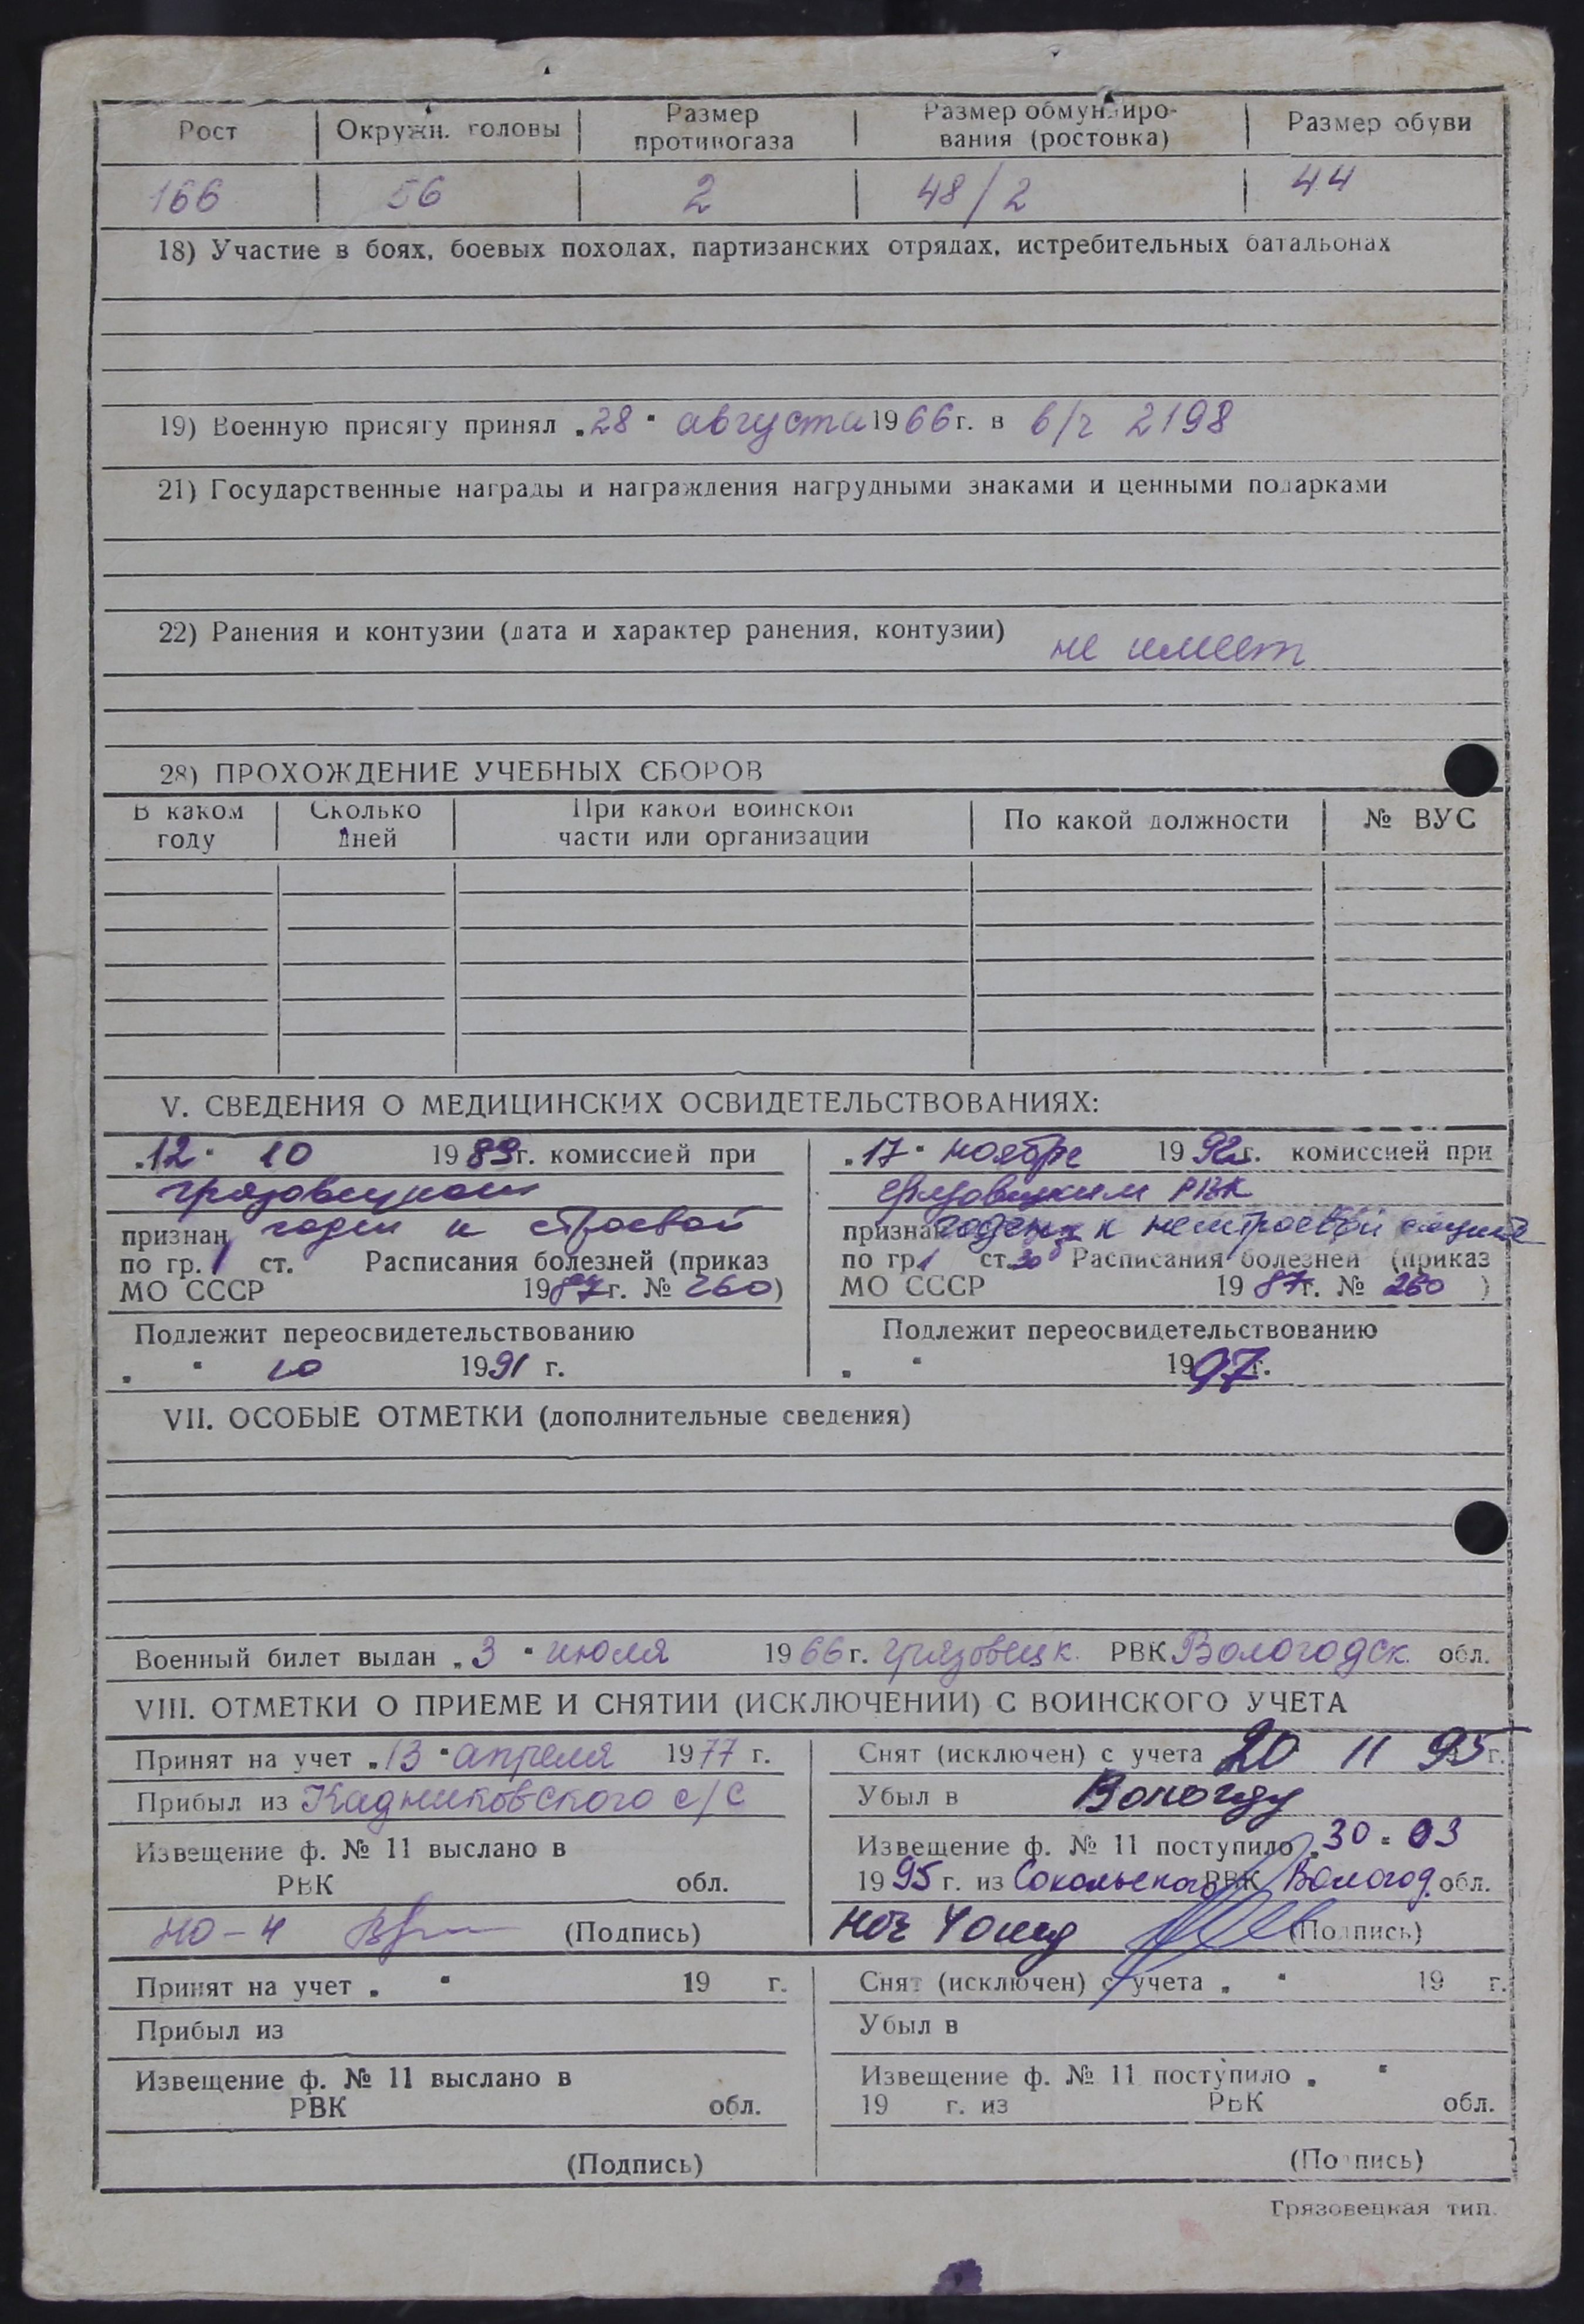 Рост Окружн. головы Размер противогаза Размер обмундирования (ростовка) Размер обуви
166 56 2 48/2 44
18) Участие в боях, боевых походах, партизанских отрядах, истребительных батальонах
19) Военную присягу принял „28" августа 1966 г. в в/ч 2198
21) Государственные награды и награждения нагрудными знаками и ценными подарками
22) Ранения и контузии (дата и характер ранения, контузии) не имеет
28) ПРОХОЖДЕНИЕ УЧЕБНЫХ СБОРОВ
В каком году Сколько дней При какой воинской части или организации По какой должности № ВУС
V. СВЕДЕНИЯ О МЕДИЦИНСКИХ ОСВИДЕТЕЛЬСТВОВАНИЯХ:
„12" 10 1989 г. комиссией при
грязовецком
признан годен к строевой
по гр. 1 ст. Расписания болезней (приказ
МО СССР 1987 г. № 260)
Подлежит переосвидетельствованию
„ " 10 1991 г.
„17" ноября 1992 г. комиссией при
Грязовецким РВК
признан годен к нестроевой службе
по гр. 1 ст. 30 Расписания болезней (приказ
МО СССР 1987 г. № 260 )
Подлежит переосвидетельствованию
„ " 1997 г.
VII. ОСОБЫЕ ОТМЕТКИ (дополнительные сведения)
Военный билет выдан „3" июля 1966 г. Грязовецк. РВК Вологодск. обл.
VIII. ОТМЕТКИ О ПРИЕМЕ И СНЯТИИ (ИСКЛЮЧЕНИИ) С ВОИНСКОГО УЧЕТА
Принят на учет „13" апреля 1977 г.
Прибыл из Кадниковского с/с
Извещение ф. № 11 выслано в
РВК обл.
НО-4 (Подпись)
Снят (исключен) с учета 20 11 95 г.
Убыл в Вологду
Извещение ф. № 11 поступило „30" 03
1995 г. из Сокольского РВК Вологод. обл.
(Подпись)
Принят на учет „ " 19 г.
Прибыл из
Извещение ф. № 11 выслано в
РВК обл.
(Подпись)
Снят (исключен) с учета „ " 19 г.
Убыл в
Извещение ф. № 11 поступило „ "
19 г. из РВК обл.
(Подпись)
Грязовецкая тип.